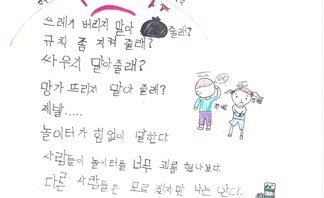 쓰레기 버리지 말아 줄래?
규칙 좀 지켜 줄래?
싸우지 말아줄래?
망가 뜨리지 말아 줄래?
제발.....
놀이터가 힘없이 말한다.
사람들이 놀이터를 너무 괴롭혔나보다.
다른 사람들은 모르겠지만 나는 안다.